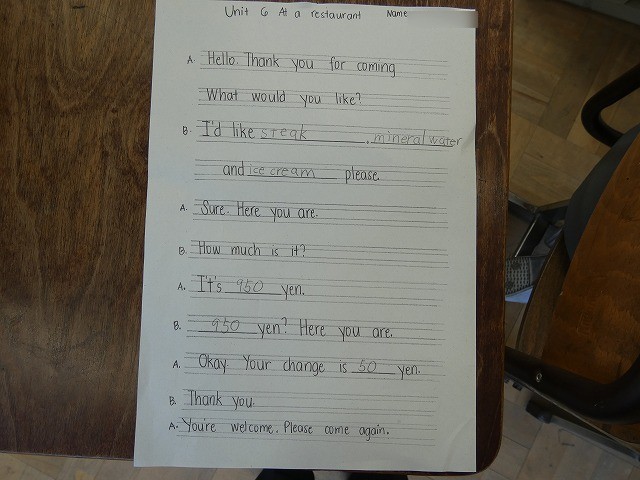 Unit 6 At a restaurant Name
A. Hello. Thank you for coming
What would you like?
B. I'd like steak, mineral water
and ice cream please.
A. Sure. Here you are.
B. How much is it?
A. It's 950 yen.
B. 950 yen? Here you are.
A. Okay. Your change is 50 yen.
B. Thank you.
A. You're welcome. Please come again.